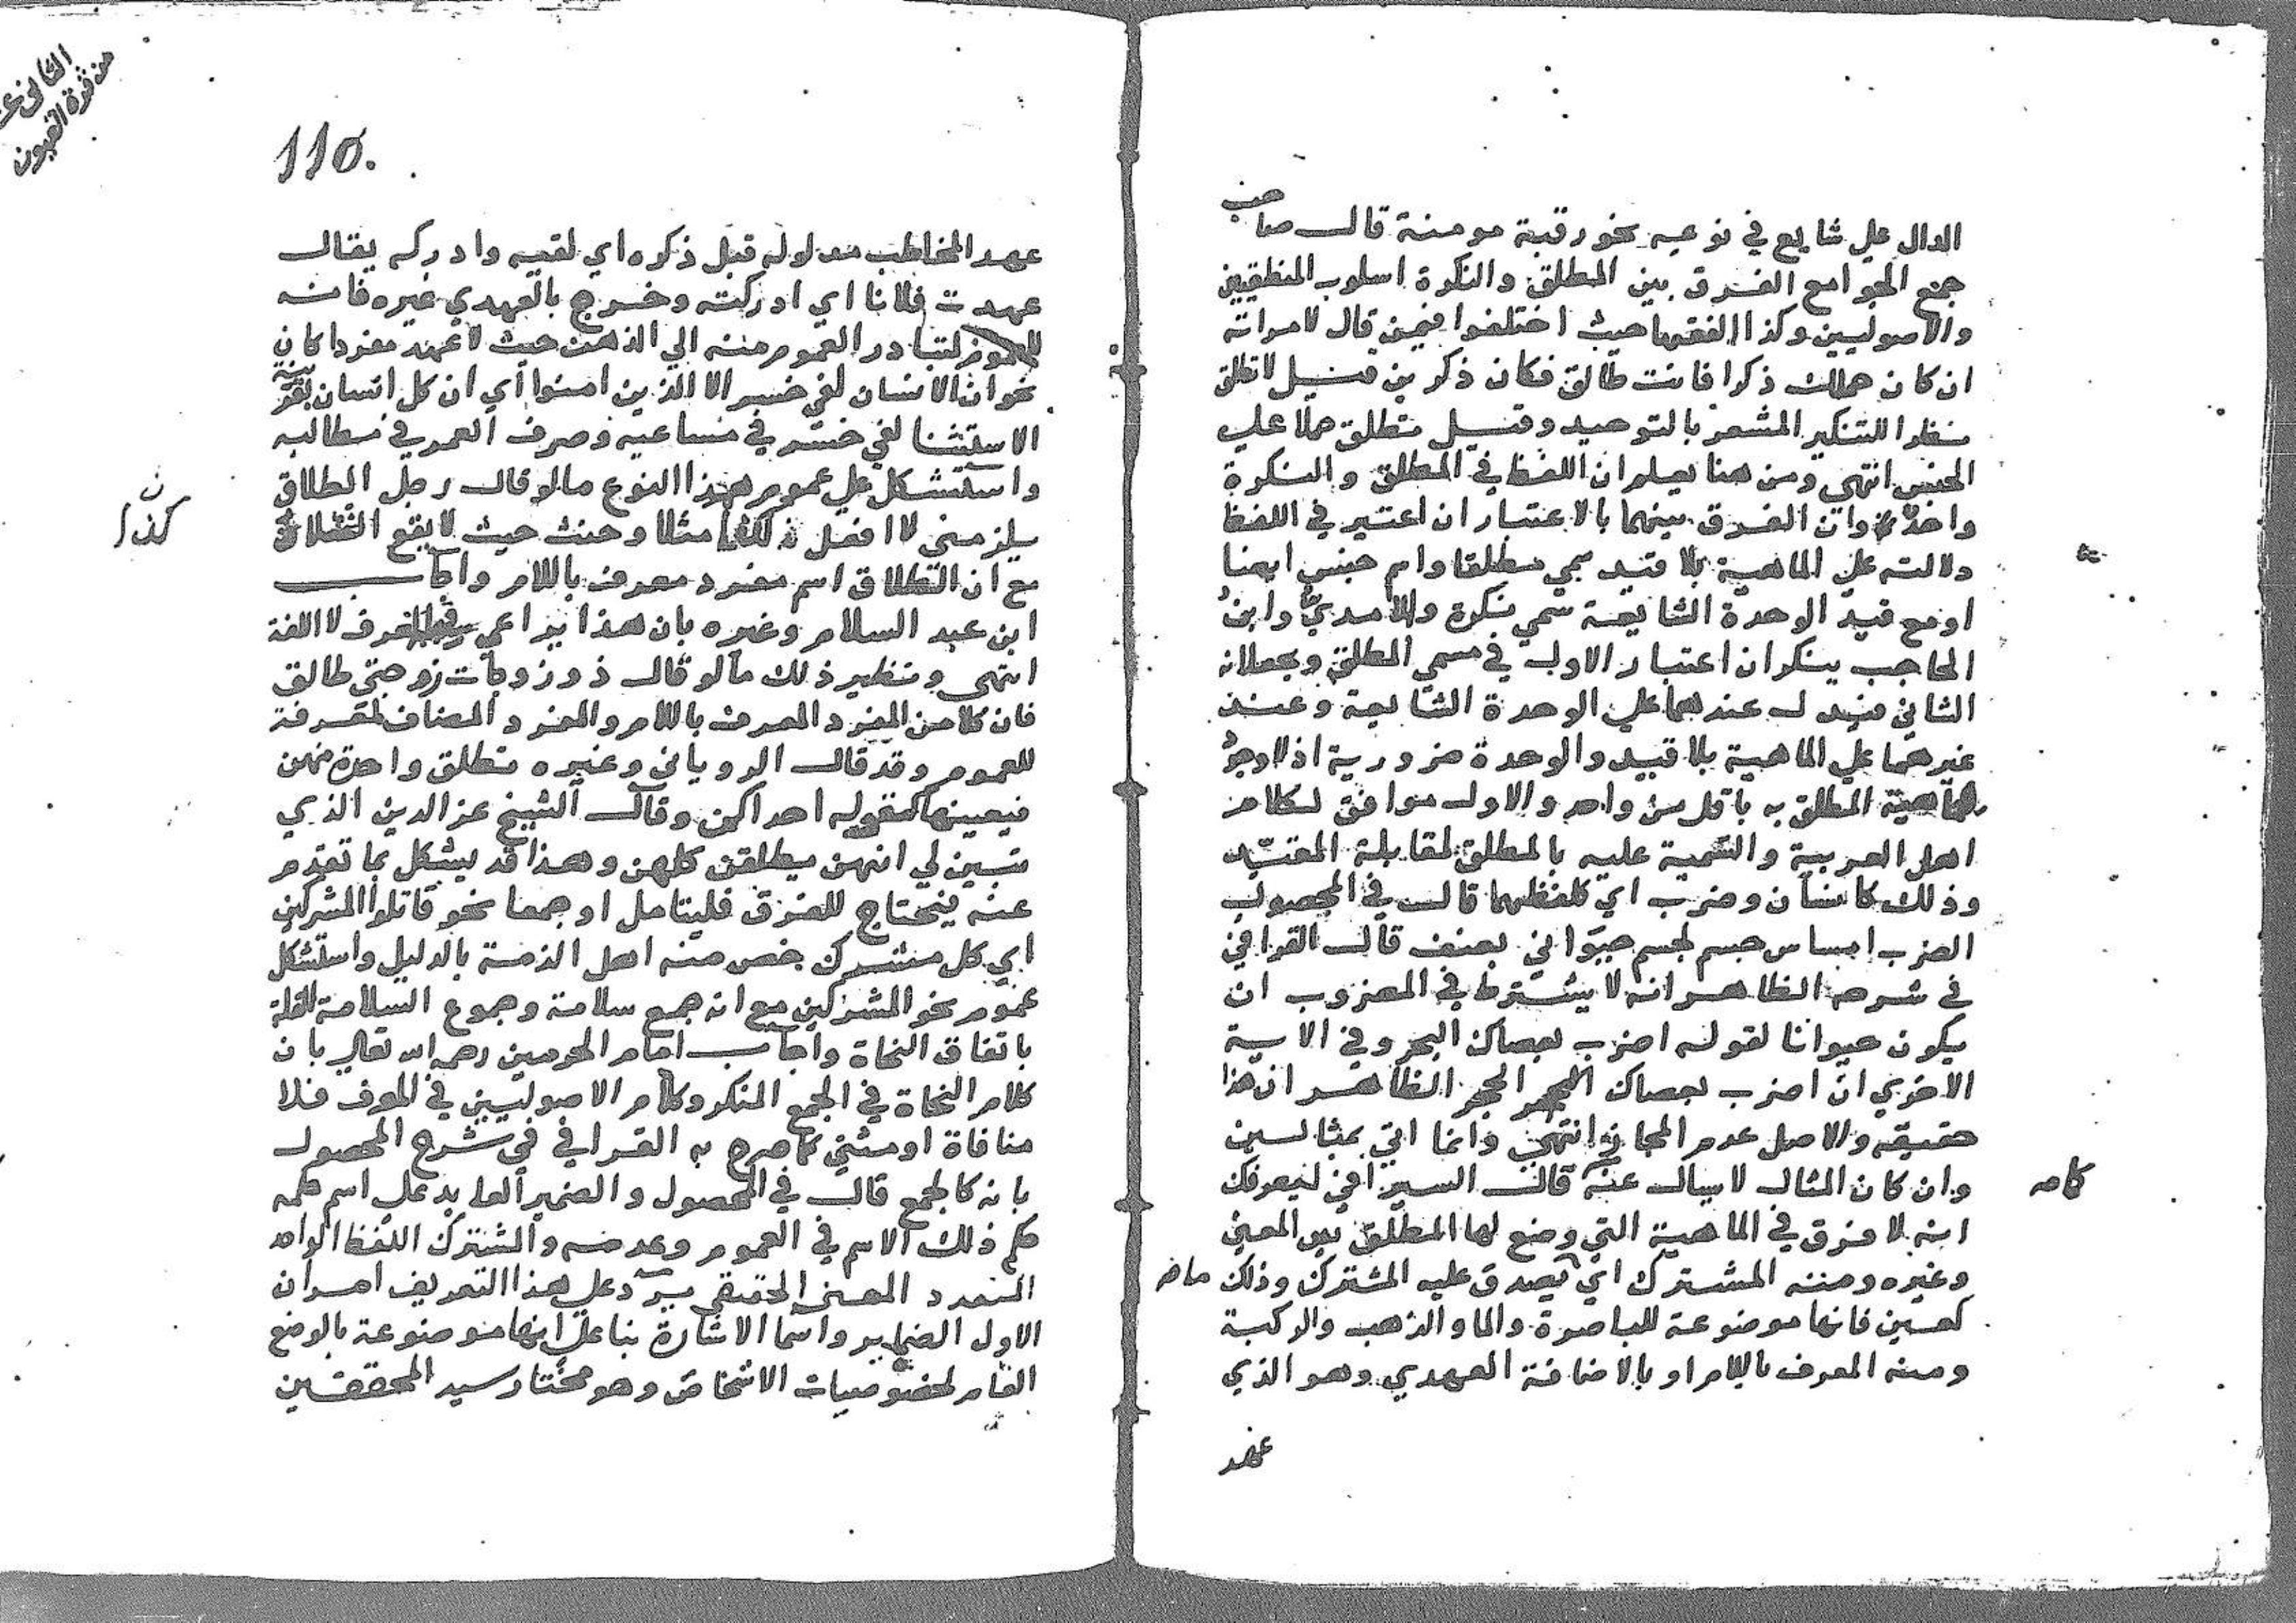 الدال علي شايع في نوعيه نحو رقبة مومنة قال صاحب
جمع الجوامع الفرق بين المطلق والنكرة اسلوب المنطقيين
والاصوليين وكذا الفقها حيث اختلفوا فيمن قال لامراته
ان كان حملك ذكرا فانت طالق فكان ذكرين قيل لا تطلق
نظرا للتنكير المشعر بالتوحيد وقيل تطلق حملا علي
الجنس انتهي ومن هنا يعلم ان اللفظ في المطلق والنكرة
واحد وان الفرق بينهما بالاعتبار ان اعتبر في اللفظ
دلالته علي الماهية بلا قيد سمي مطلقا واسم جنس ايضا
او مع قيد الوحدة الشايعة سمي نكرة والامدي وابن
الحاجب ينكران اعتبار الاول في مسمي المطلق ويجعلانه
الثاني فيدل عندهما علي الوحدة الشايعة وعند
غيرهما علي الماهية بلا قيد والوحدة ضرورية اذ لا وجود
للماهية المطلق به باقل من واحد والاول موافق لكلام
اهل العربية والتسمية عليه بالمطلق لمقابلة المقيد
وذلك كانسان وضرب اي كلفظهما قال في المحصول
الضرب امساس جسم لجسم حيواني بعنف قال القرافي
في شرحه الظاهر انه لا يشترط في المضروب ان
يكون حيوانا لقوله اضرب بعصاك البحر وفي الاية
الاخري ان اضرب بعصاك الحجر الظاهر ان هذا
حقيقه والاصل عدم المجاز انتهي وانما اتي بمثالين
وان كان المثال لا يسال عنه قال السيرافي ليعرفك
انه لا فرق في الماهية التي وضع لها المطلق بين المعين
وغيره ومنه المشترك اي يصدق عليه المشترك وذلك
كعين فانها موضوعة للباصرة والما والذهب والركبة
ومنه المعرف باللام او بالاضافة العهدي وهو الذي
عهد
110.
عهد المخاطب مدلوله قبل ذكره اي لقيه وادركه يقال
عهدت فلانا اي ادركته وخرج بالعهدي غيره فانه
للعموم لتبادر العموم منه الي الذهن حيث لا عهد مفردا كان
نحو ان الانسان لفي خسر الا الذين امنوا اي ان كل انسان بقرينة
الاستثنا لفي خسر في مساعيه وصرف العمر في مطالبه
واستشكل علي عموم هذا النوع ما لو قال رجل الطلاق
يلزمني لا افعل كذا مثلا وحنث حيث لا يقع الثلاث
مع ان الطلاق اسم مفرد معرف باللام واجاب
ابن عبد السلام وغيره بان هذا يراعي فيه العرف لا اللغة
انتهي ونظير ذلك ما لو قال ذو زوجات زوجتي طالق
فان كلا من المفرد المعرف باللام والمفرد المضاف لمعرفة
للعموم وقد قال الروياني وغيره تطلق واحدة منهن
فيعينها كقوله احداكن وقال الشيخ عز الدين الذي
تبين لي انهن يطلقن كلهن وهذا قد يشكل بما تقدم
عنه فيحتاج للفرق فليتامل او جمعا نحو قاتلوا المشركين
اي كل مشرك خص منه اهل الذمة بالدليل واستشكل
عموم نحو المشركين مع انه جمع سلامة وجموع السلامة للقلة
باتفاق النحاة واجاب امام الحرمين رحمه الله تعالي بان
كلام النحاة في الجمع المنكر وكلام الاصوليين في المعرف فلا
منافاة او مثني كما صرح به القرافي في شرح المحصول
بانه كالجمع قال في المحصول والضمير العايد علي اسم حكمه
حكم ذلك الاسم في العموم وعدمه والمشترك اللفظ الواحد
المتعدد المعني الحقيقي يرد علي هذا التعريف امران
الاول الضماير واسما الاشارة بنا علي انها موضوعة بالوضع
العام لخصوصيات الاشخاص وهو مختار سيد المحققين